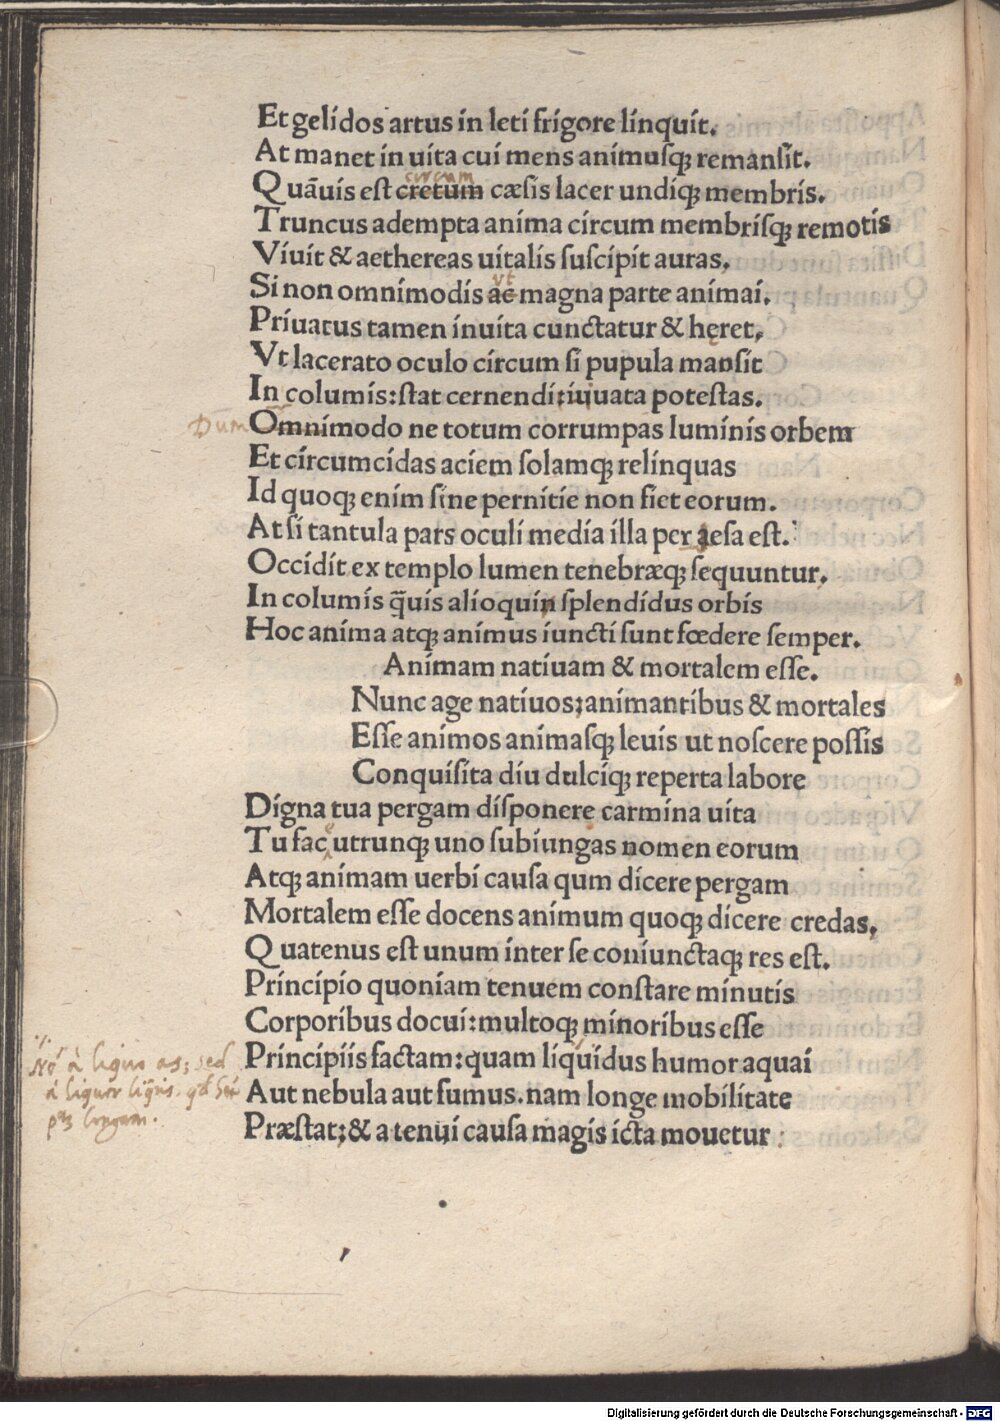 Et gelidos artus in leti frigore linquit.
At manet in uita cui mens animusq; remansit.
circum
Quāuis est cretum cæsis lacer undiq; membris.
Truncus adempta anima circum membrisq; remotis
Viuit & aethereas uitalis suscipit auras.
vt
Si non omnimodis ac magna parte animai.
Priuatus tamen inuita cunctatur & hęret.
Vt lacerato oculo circum si pupula mansit
In columis: stat cernendi: iuuata potestas.
Dum Omnimodo ne totum corrumpas luminis orbem
Et circumcidas aciem solamq; relinquas
Id quoq; enim sine pernitie non fiet eorum.
At si tantula pars oculi media illa per aesa est.
Occidit ex templo lumen tenebræq; sequuntur.
In columis q̄uis alioquin splendidus orbis
Hoc anima atq; animus iuncti sunt fœdere semper.
Animam natiuam & mortalem esse.
Nunc age natiuos; animantibus & mortales
Esse animos animasq; leuis ut noscere possis
Conquisita diu dulciq; reperta labore
Digna tua pergam disponere carmina uita
Tu fac utrunq; uno subiungas nomen eorum
Atq; animam uerbi causa qum dicere pergam
Mortalem esse docens animum quoq; dicere credas,
Quatenus est unum inter se coniunctaq; res est.
Principio quoniam tenuem constare minutis
Corporibus docui: multoq; minoribus esse
Principiis factam: quam liquidus humor aquai
Aut nebula aut fumus. nam longe mobilitate
Præstat; & a tenui causa magis icta mouetur
No à liquo as; sed
à liquor
longam.
Digitalisierung gefördert durch die Deutsche Forschungsgemeinschaft - DFG